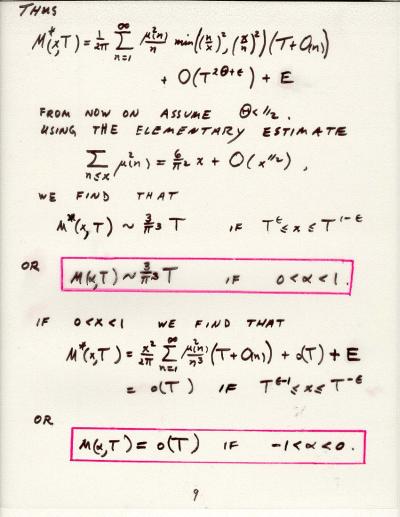 THUS
M*(x,T) = 1/2π ∑_{n=1}^{∞} μ²(n)/n min((n/x)², (x/n)²)(T + O(n))
+ O(T^{2Θ+ε}) + E
FROM NOW ON ASSUME Θ < 1/2.
USING THE ELEMENTARY ESTIMATE
∑_{n≤x} μ²(n) = 6/π² x + O(x^{1/2}),
WE FIND THAT
M*(x,T) ~ 3/π³ T IF T^ε ≤ x ≤ T^{1-ε}
OR M(α,T) ~ 3/π³ T IF 0 < α < 1.
IF 0 < x < 1 WE FIND THAT
M*(x,T) = x²/2π ∑_{n=1}^{∞} μ²(n)/n³ (T + O(n)) + o(T) + E
= o(T) IF T^{ε-1} ≤ x ≤ T^{-ε}
OR
M(α,T) = o(T) IF -1 < α < 0.
9